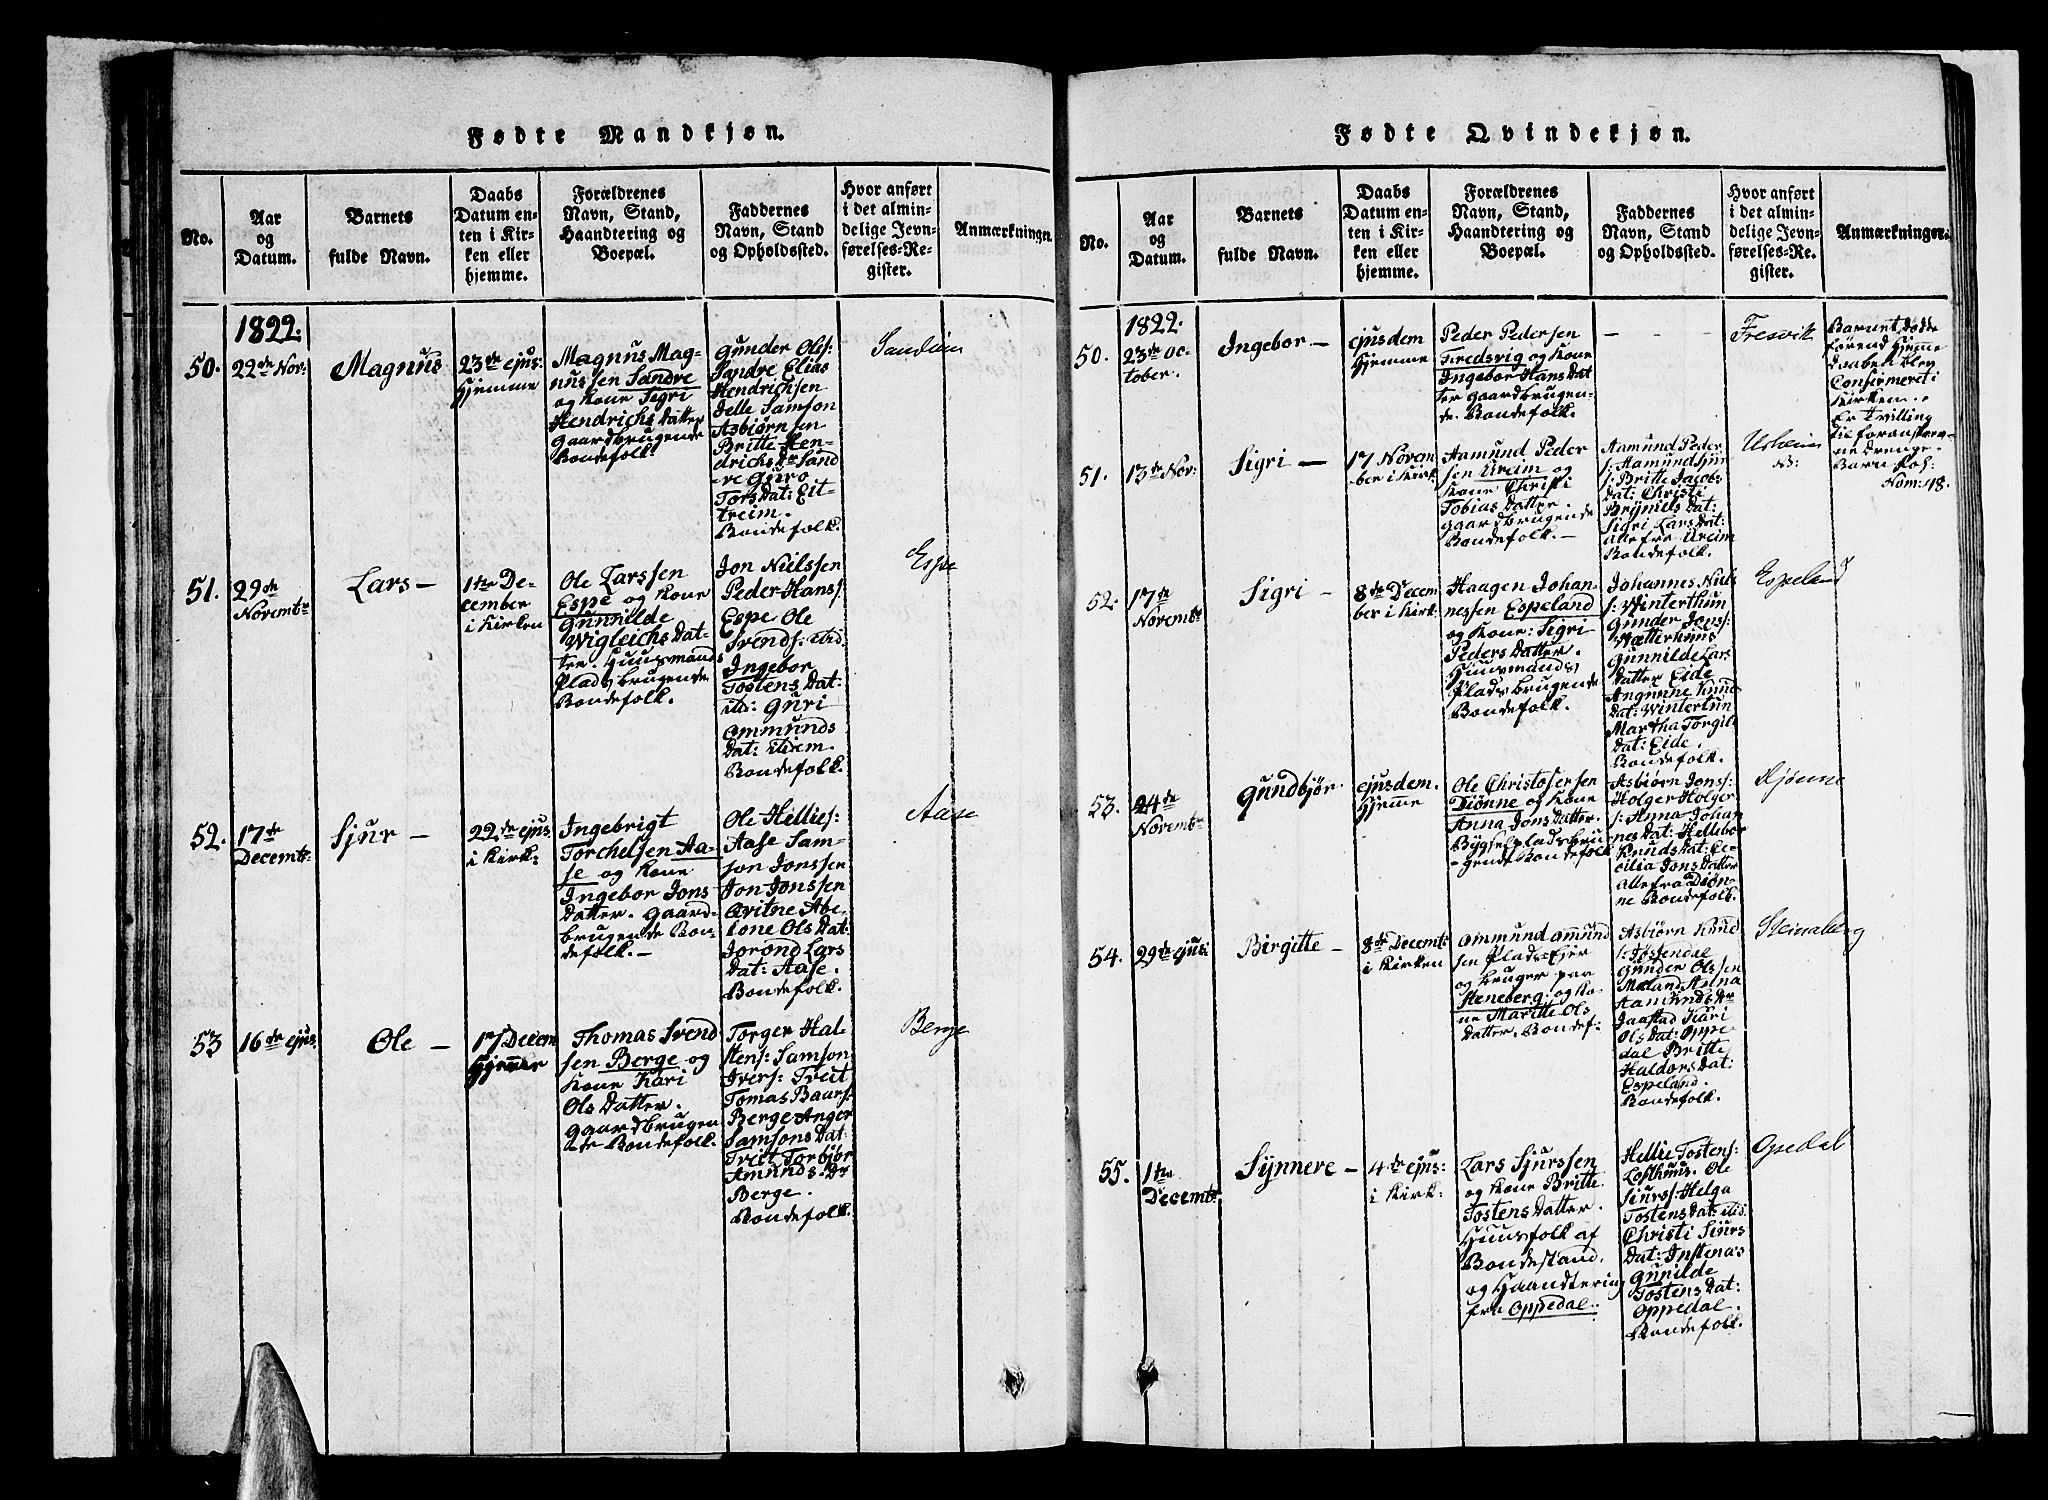 Fødte Mandkjøn.
No.
Aar
og
Datum.
Barnets
fulde Navn.
Daabs
Datum en-
ten i Kir-
ken eller
hjemme.
Forældrenes
Navn, Stand,
Haandtering og
Boepæl.
Faddernes
Navn, Stand
og Opholdssted.
Hvor anført
i det almin-
delige Jevn-
førelses-Re-
gister.
Anmærkninger.
1822.
50.
22de Nov:
Magnus
23de ejus:
Hjemme
Magnus Mag-
nussen Sandre
og Kone Sigri
Hendrichs Datter
Gaardbrugende
Bondefolk.
Gunder Ols:
Sandre Elias
Hendrichsen
Jelle Samson
Asbiørnsen
Britte Hen-
drichs Dr Sand
re Guro
Tors Dat: Eit-
treim.
Bondefolk.
51.
29de
Novembr
Lars –
1te De-
cember
i Kirken
Ole Larssen
Espe og Kone
Gunnilde
Wigleichs Dat-
ter. Huusmands
Plads brugende
Bondefolk.
Jon Nielssen
Peder Hans:
Espe Ole
Svends: itid:
Ingebor
Tostens Dat:
itid: Guri
Ommunds
Dat: itidem.
Bondefolk.
Espe
52.
17de
Decembr:
Sjur –
22de ejus:
i Kirk:
Ingebrigt
Torchelsen Aa-
se og Kone
Ingebor Jons
Datter. Gaard-
brugende Bon-
defolk. –
Ole Hellies:
Aase Sam-
son Jonssen
Jon Jonssen
Qvitne Abe-
lone Ols Dat:
Jorond Lars
Dat: Aase.
Bondefolk.
Aase
53
16de ejus.
Ole –
17 Decem
Hjemme
Thomas Svend
sen Berge og
Kone Kari
Ols Datter.
Gaardbrugen
de Bondefolk.
Torger Hal-
stens: Samson
Ivers: Tveit
Tomas Baars:
Berge Anger
Samsons Dat:
Tveit Torbjør
Amunds Dr
Berge.
Bondefolk.
Berge
Fødte Qvindekjøn.
No.
Aar
og
Datum.
Barnets
fulde Navn.
Daabs
Datum en-
ten i Kir-
ken eller
hjemme.
Forældrenes
Navn, Stand,
Haandtering og
Boepæl.
Faddernes
Navn, Stand,
og Opholdssted.
Hvor anført
i det almin-
delige Jevn-
førelses-Re-
gister.
Anmærkninger.
1822.
50.
23de Oc-
tober.
Ingebor –
ejusdem
Hjemme
Peder Pedersen
Fredsvig og Kone
Ingebor Hans Dat
ter Gaardbrugen-
de. Bondefolk.
– – –
Fresvik
Barnet døde
førend Hjemme
Daaben blev
Confirmeret i
Kirken.
Er Tvilling
til foranskrev-
ne Drenge-
Barn fol:
Nom: 48.
51.
13de Nov:
Sigri –
17 Novem
ber i Kirk
Aamund Peder
sen Ureim og
Kone Christi
Tobias Datter.
Gaardbrugende
Bondefolk. –
Aamund Peder
s: Aamund Sjur
s: Britte Jacobs
Dat: Christi
Brÿniels Dat:
Sigri Lars Dat:
alle fra Ureim
Bondefolk.
52.
17de
Novembr
Sigri –
8de Decem
ber i Kirk
Haagen Johan-
nessen Espeland
og Kone: Sigri
Peders Datter.
Huusmands
Plads brugende
Bondefolk.
Johannes Niels
s: Winterthun
Gunder Jons:
Wætterhuus
Gunnilde Lars
Datter Eide
Angunne Knud
Dat: Wintertun
Martha Torgils
Dat: Eide.
Bondefolk.
Espeland
53.
24de
Novembr
Gundbjør
ejusdem.
Hjemme
Ole Christofersen
Diønne og Kone
Anna Jons Datter.
Bygselplads bru
gende Bondefolk
Asbiørn Jons:
Holger Holger
s: Anna Johan
nes Dat: Hellebor
Knuds Dat: Ce-
cilia Jons Datter
alle fra Diøn-
ne Bondefolk.
Djønne
54.
29de ejus:
Birgitte –
8de Decemb:
i Kirken
Ommund Ommund
sen Plads-Ejer
og bruger paa
Steneberg og Ko-
ne Maritte Ols
Datter. Bondef-
Asbiørn Knud
s: Jøstendal
Gunder Olssen
Mæland Anna
Aamunds Dr
Jaastad Kari
Ols Dat: Oppe-
dal Britte
Haldors Dat:
Espeland.
Bondefolk.
Steinaberg
55.
1te
Decembr
Sÿnnere –
4de ejus:
i Kirk:
Lars Sjurssen
og Kone Britte
Tostens Datter.
Huusfolk af
Bondestand.
og Haandtering
fra Oppedal.
Hellie Tostens:
Lofthuus. Ole
Siurs: Helga
Tostens Dat: itid.
Christi Siurs
Dat: Instenæs
Gunilde
Tostens Dat:
Oppedal.
Bondefolk.
Opedal